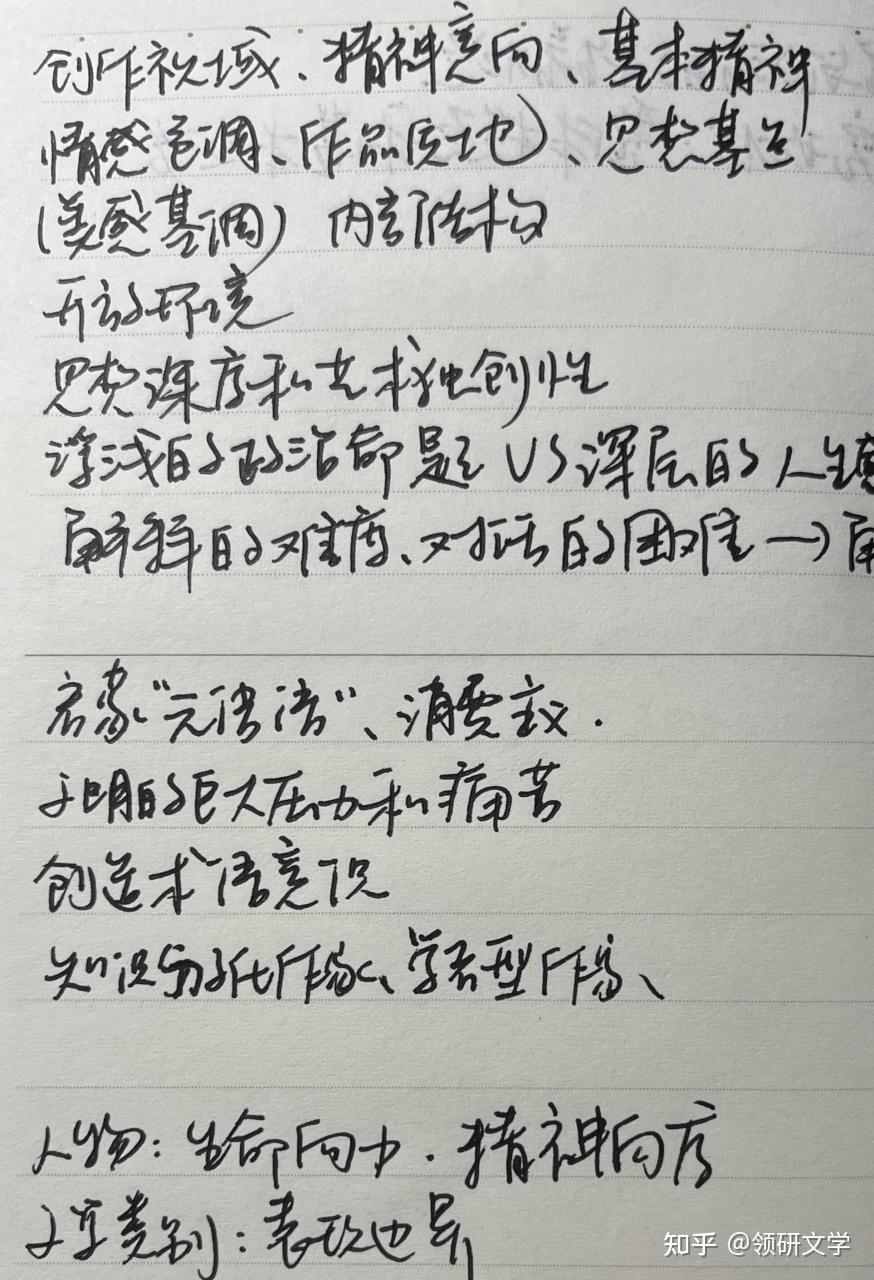 创作视域、精神意向、基本精神
情感色调、作品质地)、思想基点
(美感基调) 内部结构
开放环境
思想深度和艺术独创性
浮浅的政治命题 VS 深层的人生
解释的难度、对话的困难→
启蒙“元话语”、消费主义.
文明的巨大压力和痛苦
创造术语意识
知识分子化作家、学者型作家、
人物:生命向力.精神向度
文学类别:表现边界
知乎 @领研文学